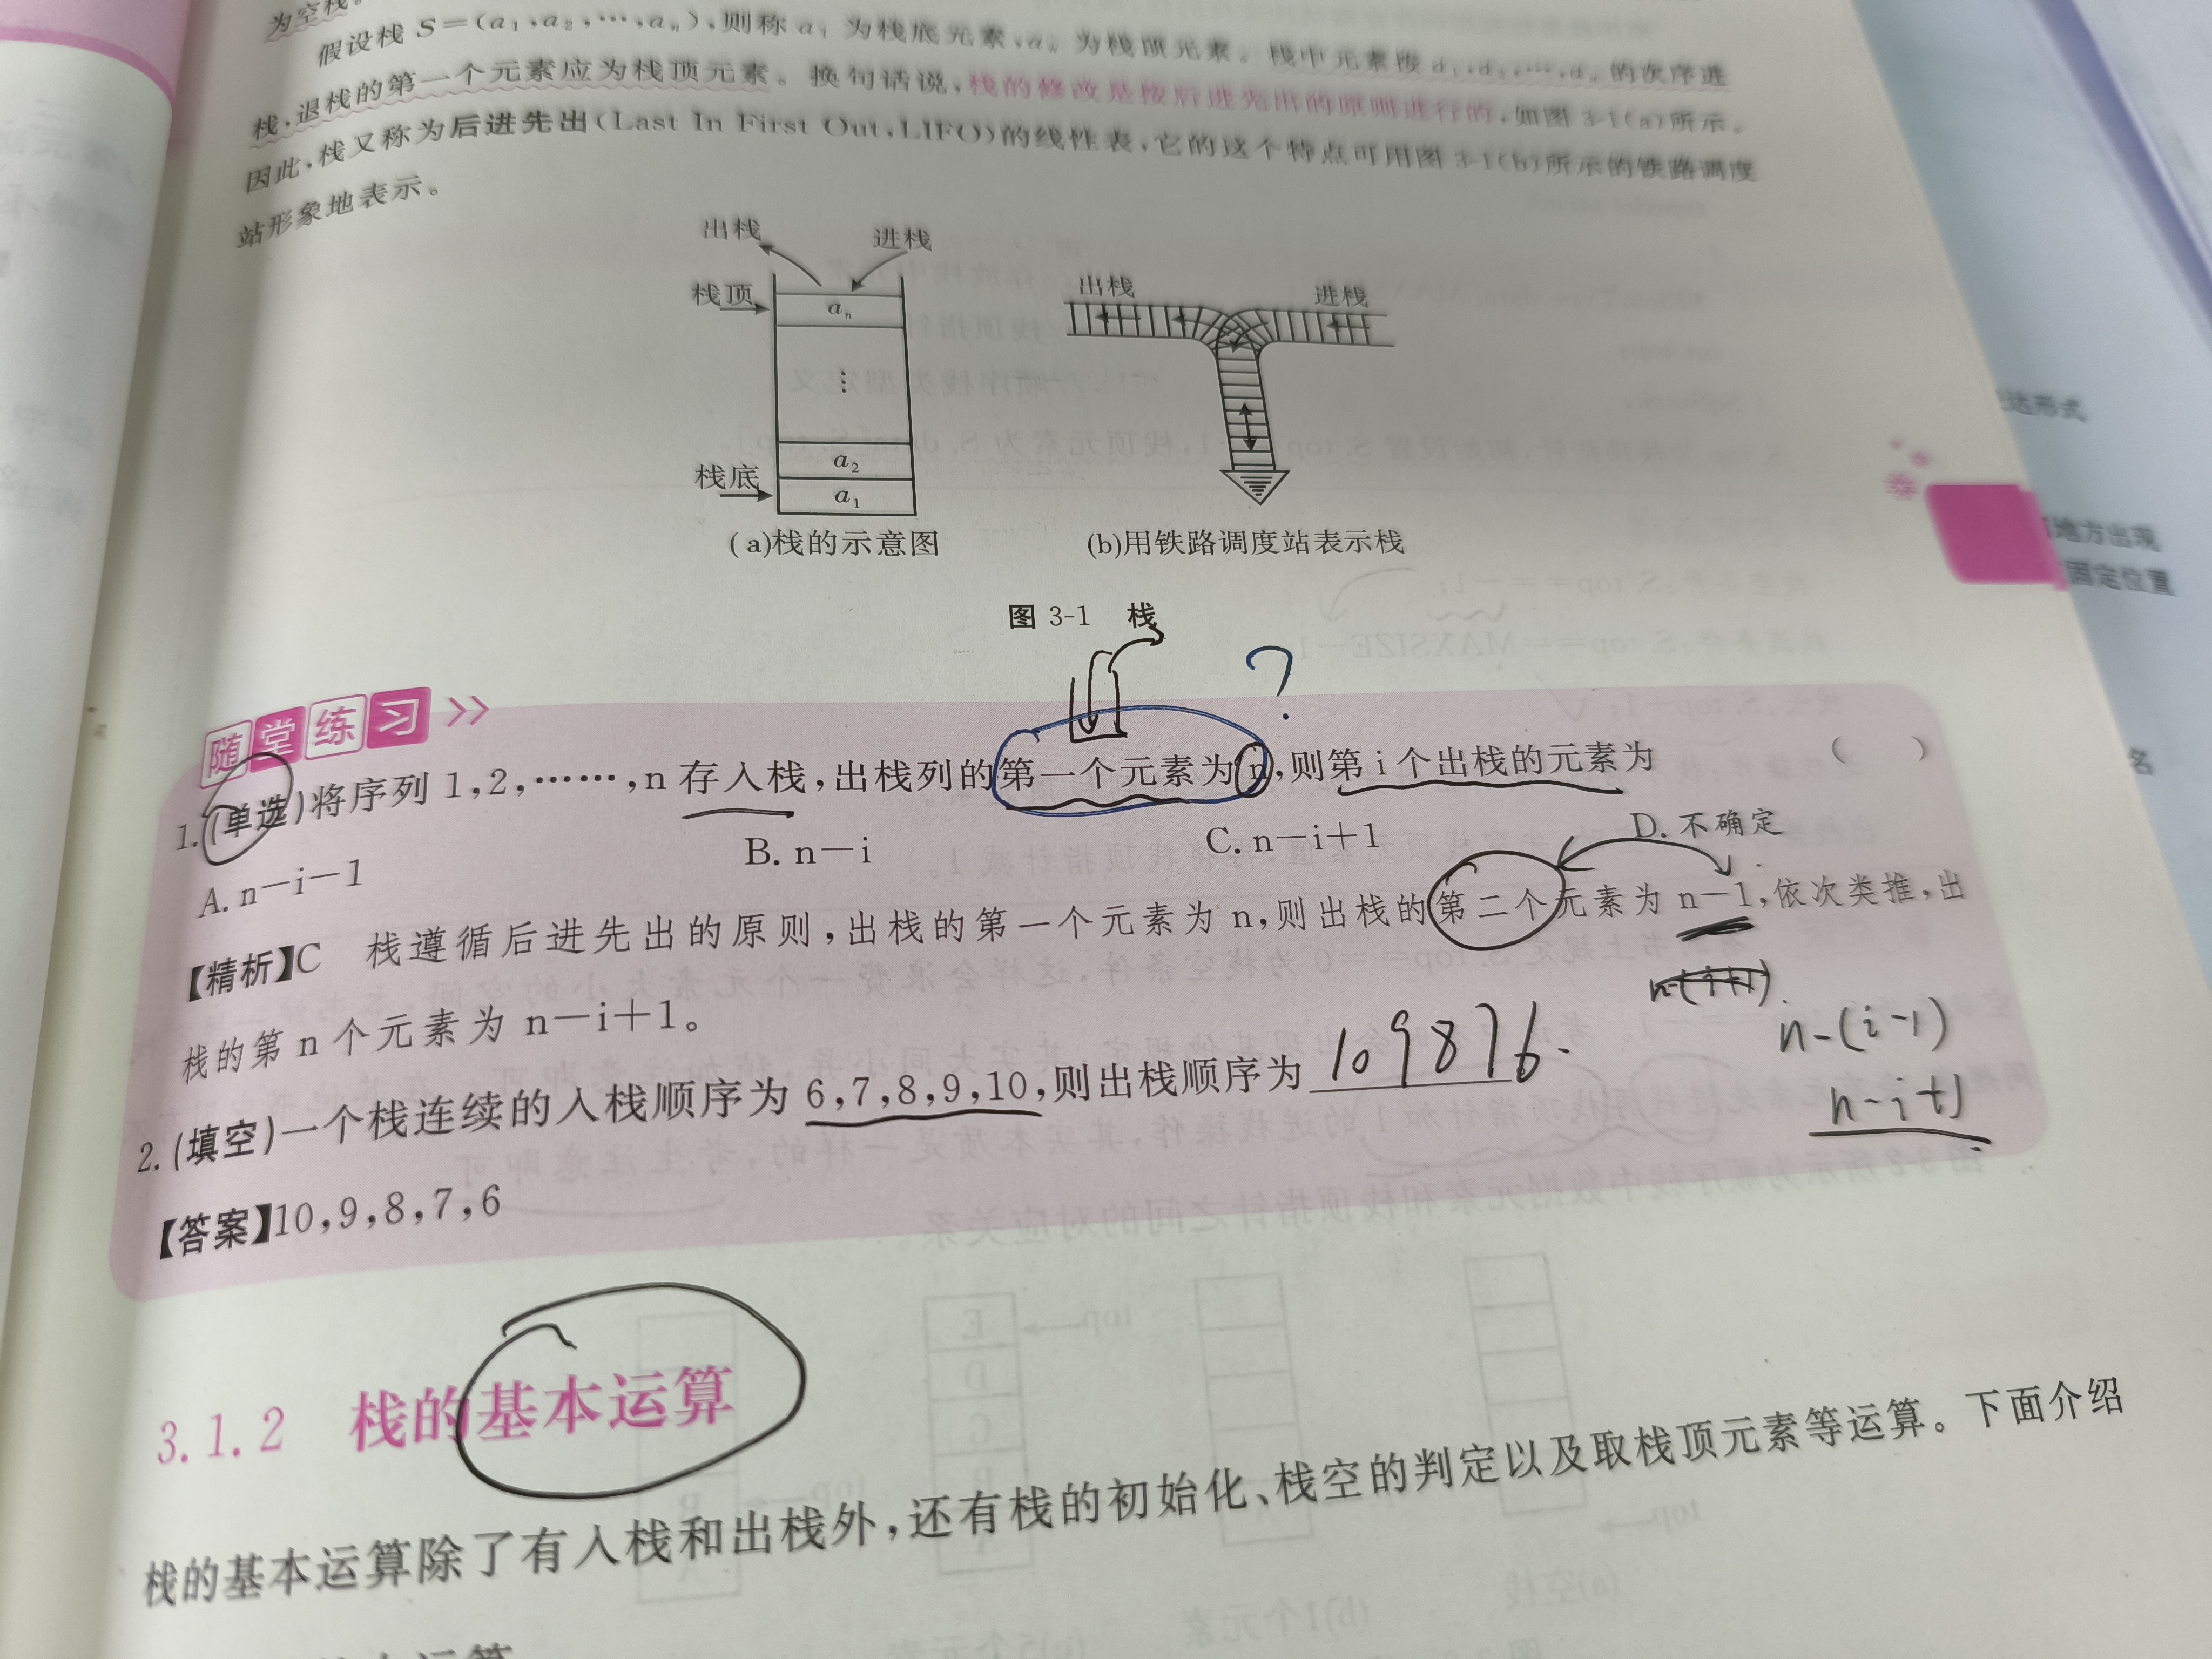 为空栈。
假设栈 S=(a₁,a₂,…,aₙ),则称 a₁ 为栈底元素,aₙ 为栈顶元素。栈中元素按 a₁,a₂,…,aₙ 的次序进
栈,退栈的第一个元素应为栈顶元素。换句话说,栈的修改是按后进先出的原则进行的,如图 3-1(a)所示。
因此,栈又称为后进先出(Last In First Out,LIFO)的线性表,它的这个特点可用图 3-1(b)所示的铁路调度
站形象地表示。
出栈 进栈
栈顶 aₙ
⋮
a₂
栈底 a₁
(a)栈的示意图
出栈 进栈
(b)用铁路调度站表示栈
图 3-1 栈
?
随堂练习 >>
1.(单选)将序列 1,2,……,n 存入栈,出栈列的第一个元素为 n,则第 i 个出栈的元素为 ( )
A. n-i-1 B. n-i C. n-i+1 D. 不确定
【精析】C 栈遵循后进先出的原则,出栈的第一个元素为 n,则出栈的第二个元素为 n-1,依次类推,出
栈的第 n 个元素为 n-i+1。
n-(i+1)
n-(i-1)
n-i+1
2.(填空)一个栈连续的入栈顺序为 6,7,8,9,10,则出栈顺序为 10 9 8 7 6.
【答案】10,9,8,7,6
3.1.2 栈的基本运算
栈的基本运算除了有入栈和出栈外,还有栈的初始化、栈空的判定以及取栈顶元素等运算。下面介绍
达形式
地方出现
固定位置
名